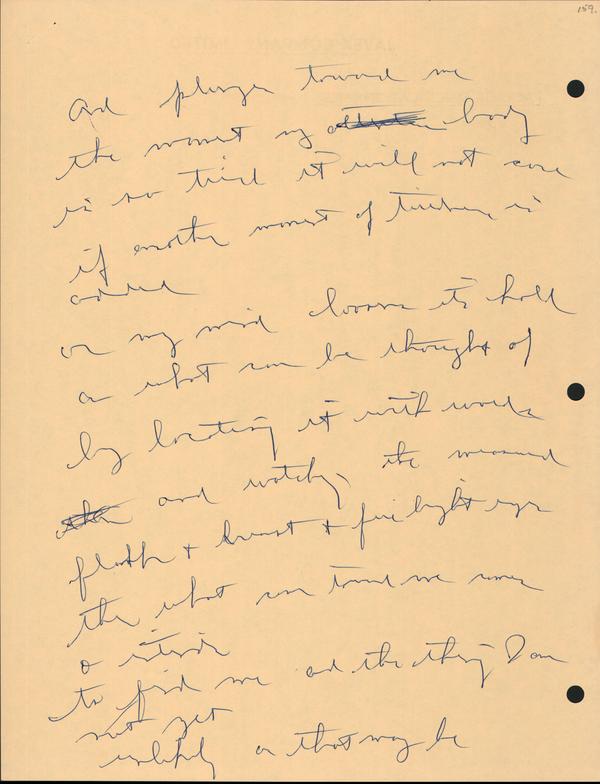 159.
and plunge toward me
the moment my body
is so tired it will not care
if another moment of tiredness is
added
or my mind loosens its hold
on what can be thought of
by locating it with words
and watching the measured
flash + burst + firelight eyes
the what can me
to find me and the thing I am
not yet
unlikely or that may be